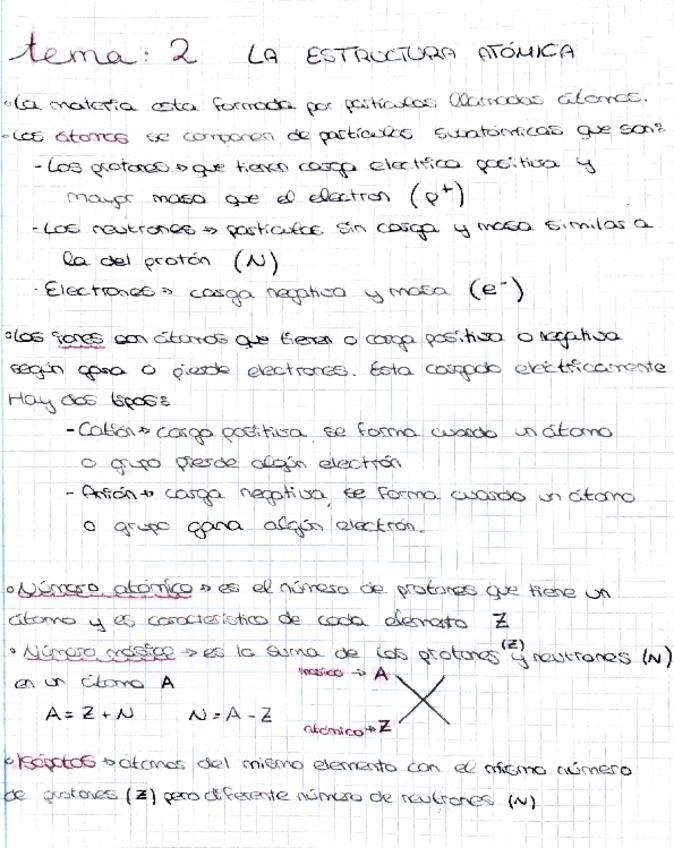 tema: 2 LA ESTRUCTURA ATÓMICA
La materia esta formada por partículas llamadas átomos.
Los átomos se componen de partículas subatómicas que son:
- Los protones → que tienen carga electrica positiva y
mayor masa que el electron (p+)
- Los neutrones → partículas sin carga y masa similar a
la del protón (N)
- Electrones → carga negativa y masa (e-)
Los iones son átomos que tienen o carga positiva o negativa
según gana o pierde electrones. Esta cargado eléctricamente
Hay dos tipos:
- Catión → carga positiva, se forma cuando un átomo
o grupo pierde algún electrón
- Anión → carga negativa, se forma cuando un átomo
o grupo gana algún electrón.
Número atómico → es el número de protones que tiene un
átomo y es característico de cada elemento Z
Número másico → es la suma de los protones (Z) y neutrones (N)
en un átomo A
másico → A
A = Z + N N = A - Z
atómico → Z
X
Isópotos → átomos del mismo elemento con el mismo número
de protones (Z) pero diferente número de neutrones (N)